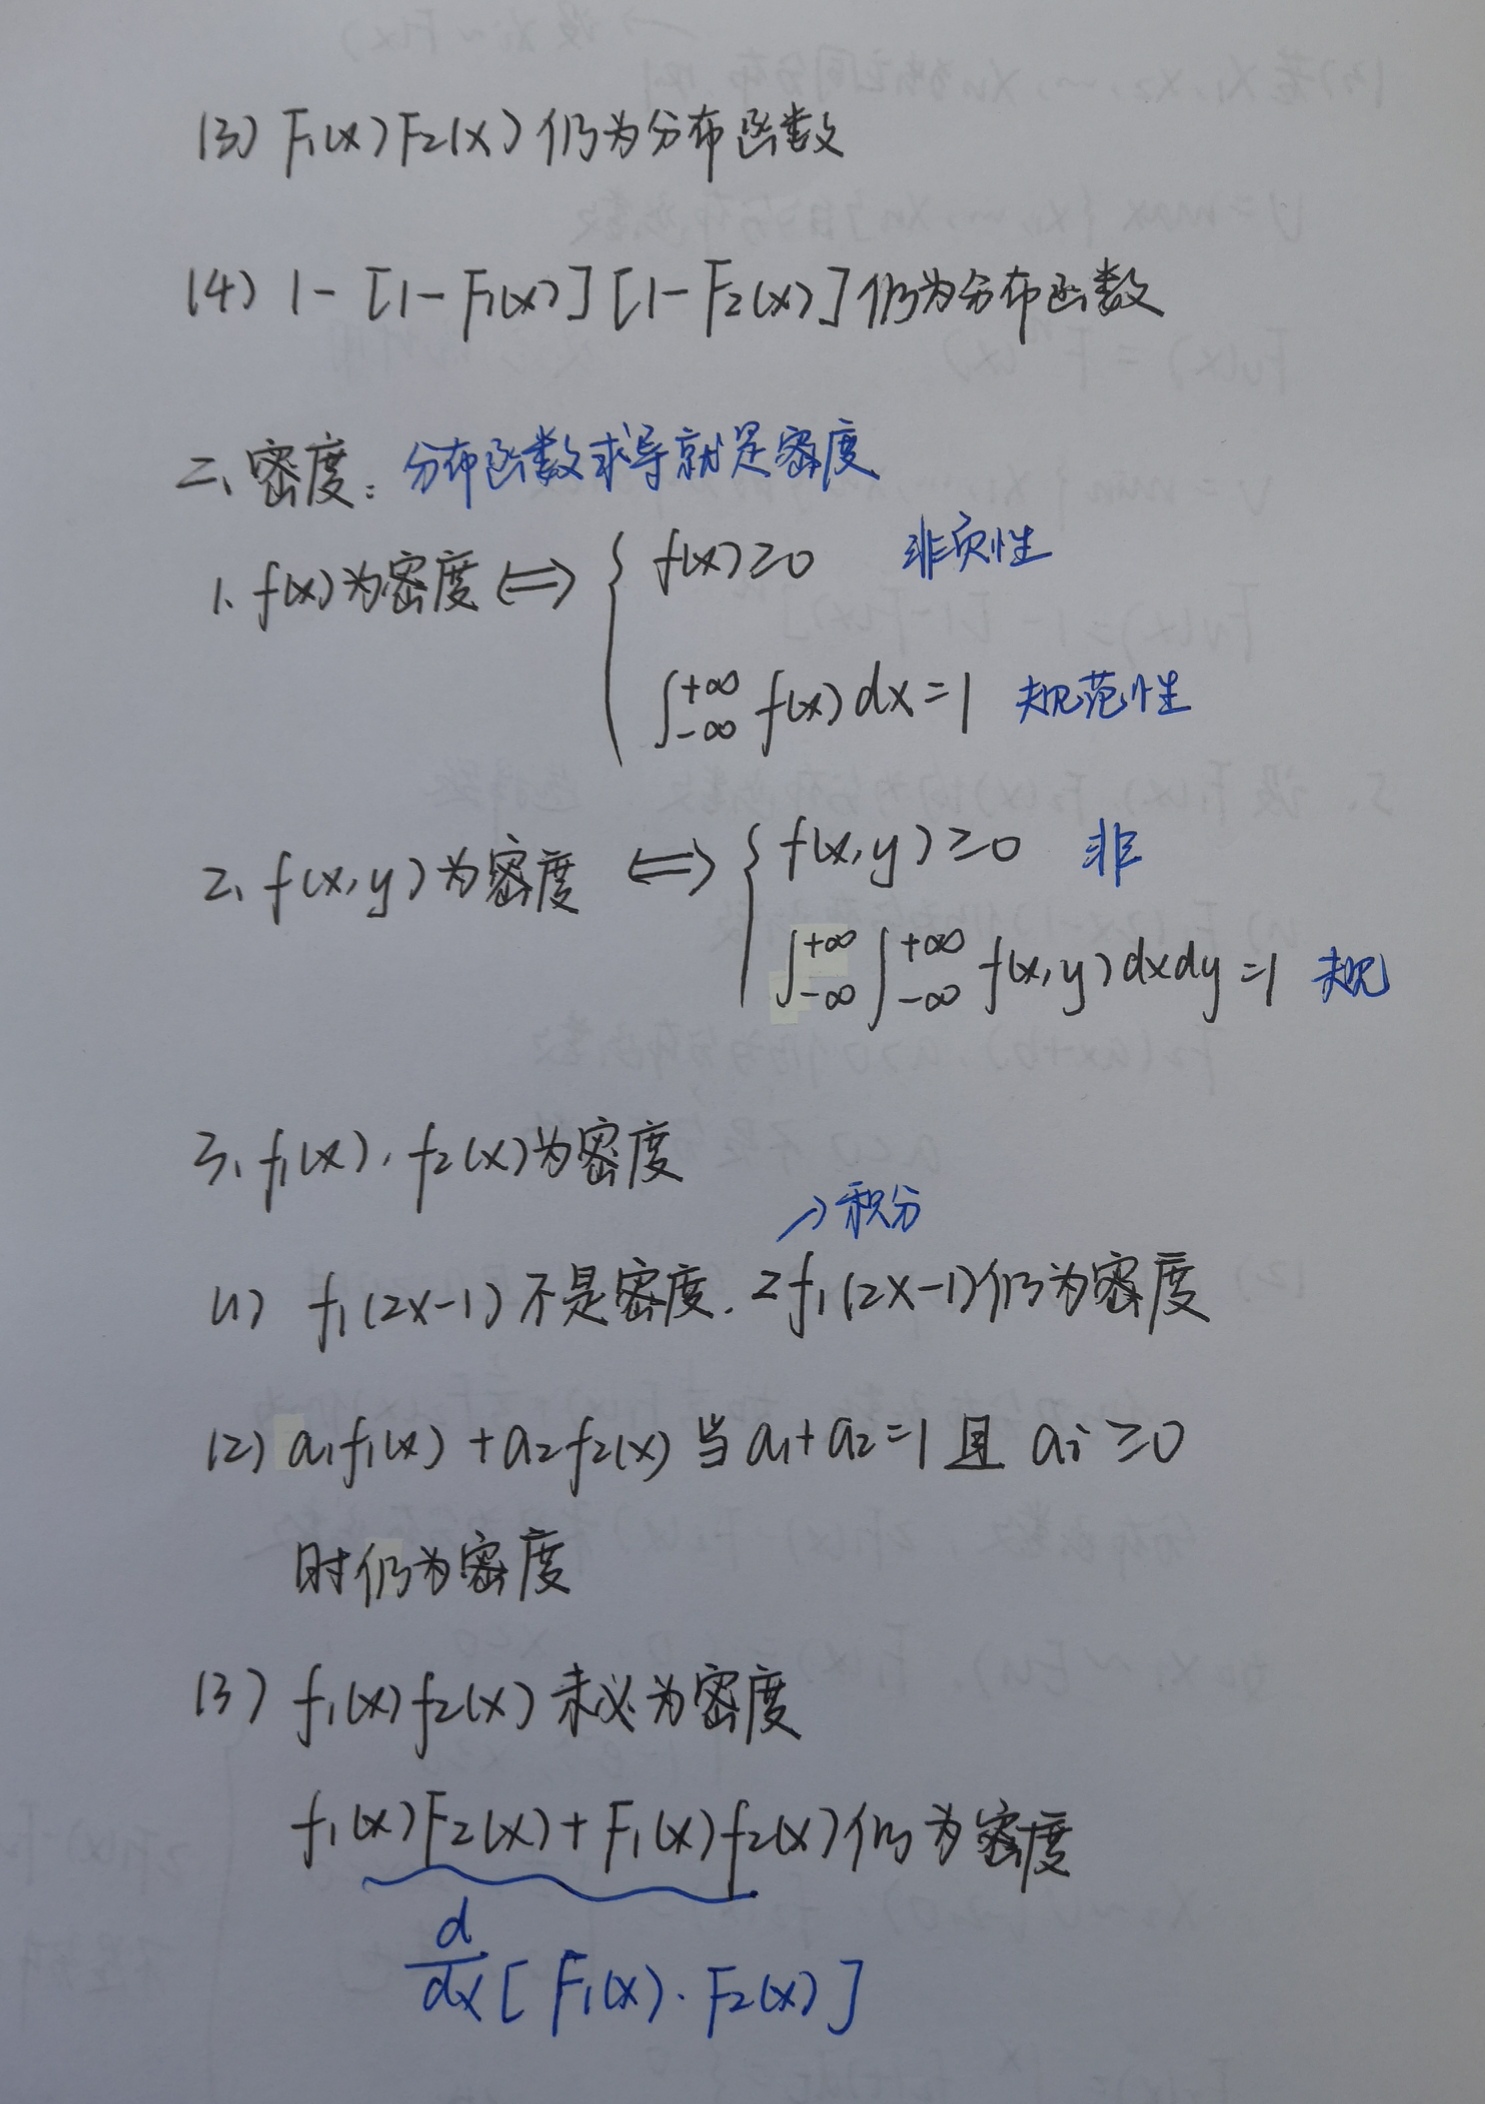 (3) F₁(x)F₂(x)仍为分布函数
(4) 1-[1-F₁(x)][1-F₂(x)]仍为分布函数
二、密度：分布函数求导就是密度
1、f(x)为密度⟺{ f(x)≥0 非负性
∫_{-∞}^{+∞} f(x)dx=1 规范性
2、f(x,y)为密度 ⟺ { f(x,y)≥0 非
∫_{-∞}^{+∞}∫_{-∞}^{+∞} f(x,y)dxdy=1 规
3、f₁(x), f₂(x)为密度
→积分
(1) f₁(2x-1)不是密度. 2f₁(2x-1)仍为密度
(2) a₁f₁(x)+a₂f₂(x)当a₁+a₂=1且 aᵢ≥0
时仍为密度
(3) f₁(x)f₂(x)未必为密度
f₁(x)F₂(x)+F₁(x)f₂(x)仍为密度
d/dx[F₁(x)·F₂(x)]